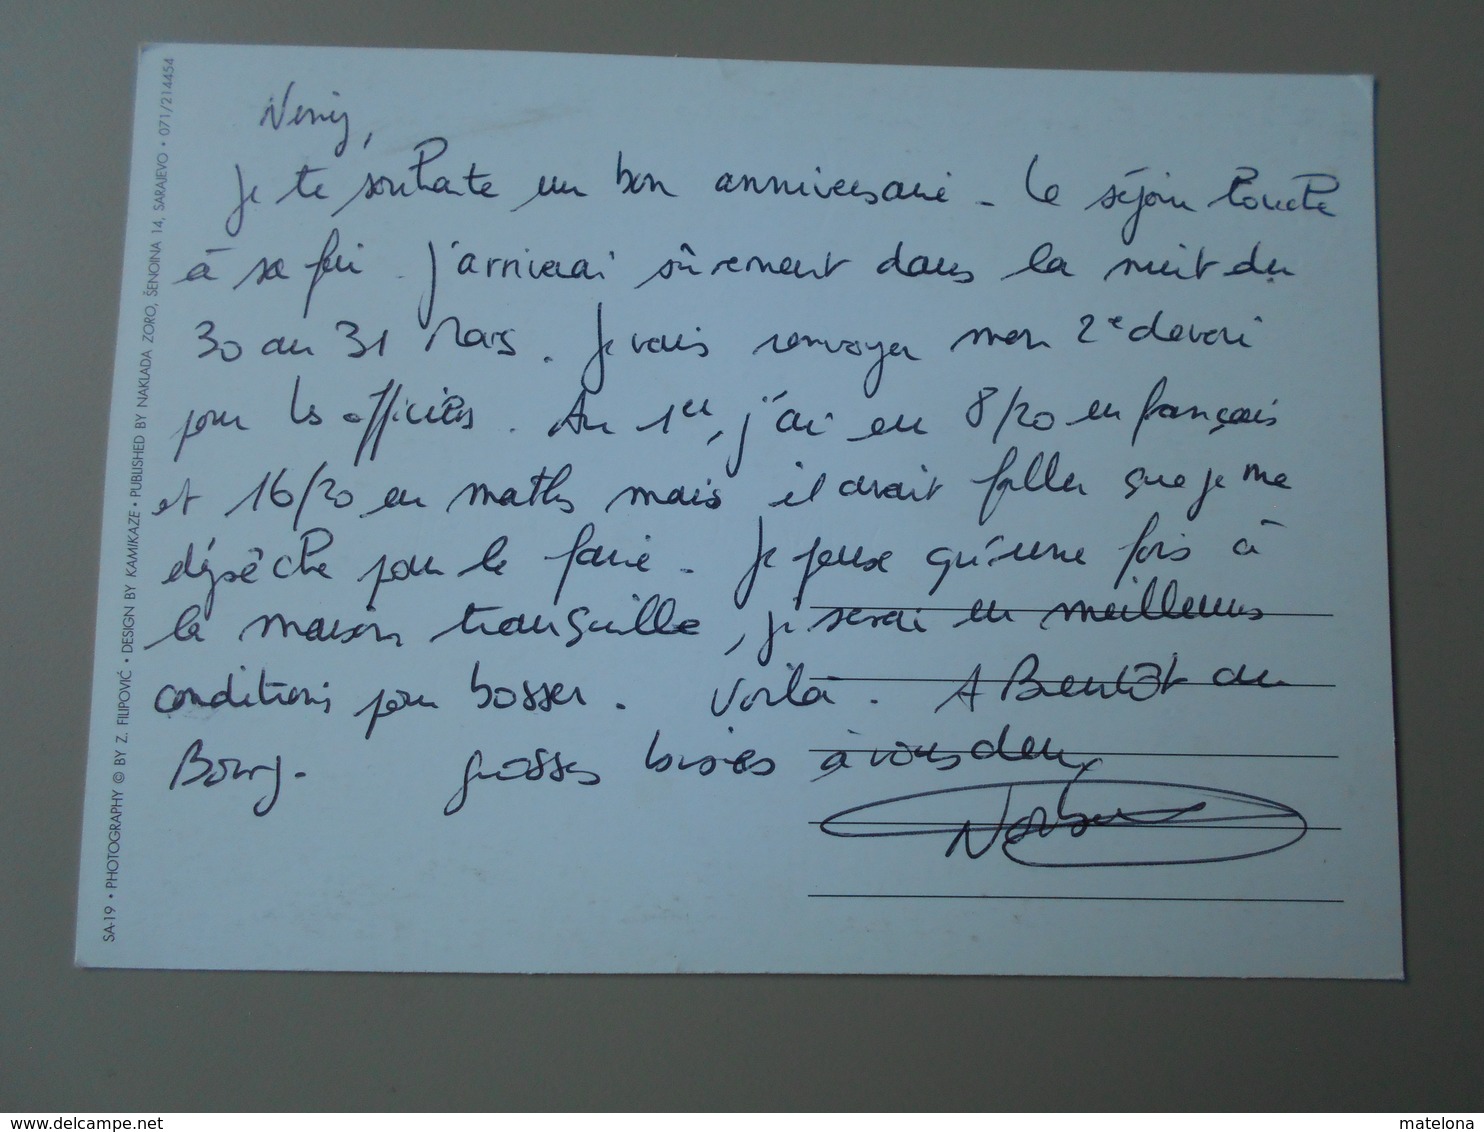 Je te souhaite un bon anniversaire. Le séjour touche
à sa fin. J'arriverai sûrement dans la nuit du
30 au 31 Mars. Je vais renvoyer mon 2e devoir
pour les officiers. Au 1er, j'ai eu 8/20 en français
et 16/20 en maths mais il avait fallu que je me
dépêche pour le faire. Je pense qu'une fois à
la maison tranquille, je serai en meilleures
conditions pour bosser. Voilà. A Bientôt au
Bourg. grosses bises à vous deux
SA-19 • PHOTOGRAPHY © BY Z. FILIPOVIĆ • DESIGN BY KAMIKAZE • PUBLISHED BY NAKLADA ZORO, ŠENOINA 14, SARAJEVO • 071/214454
www.delcampe.net
matelona